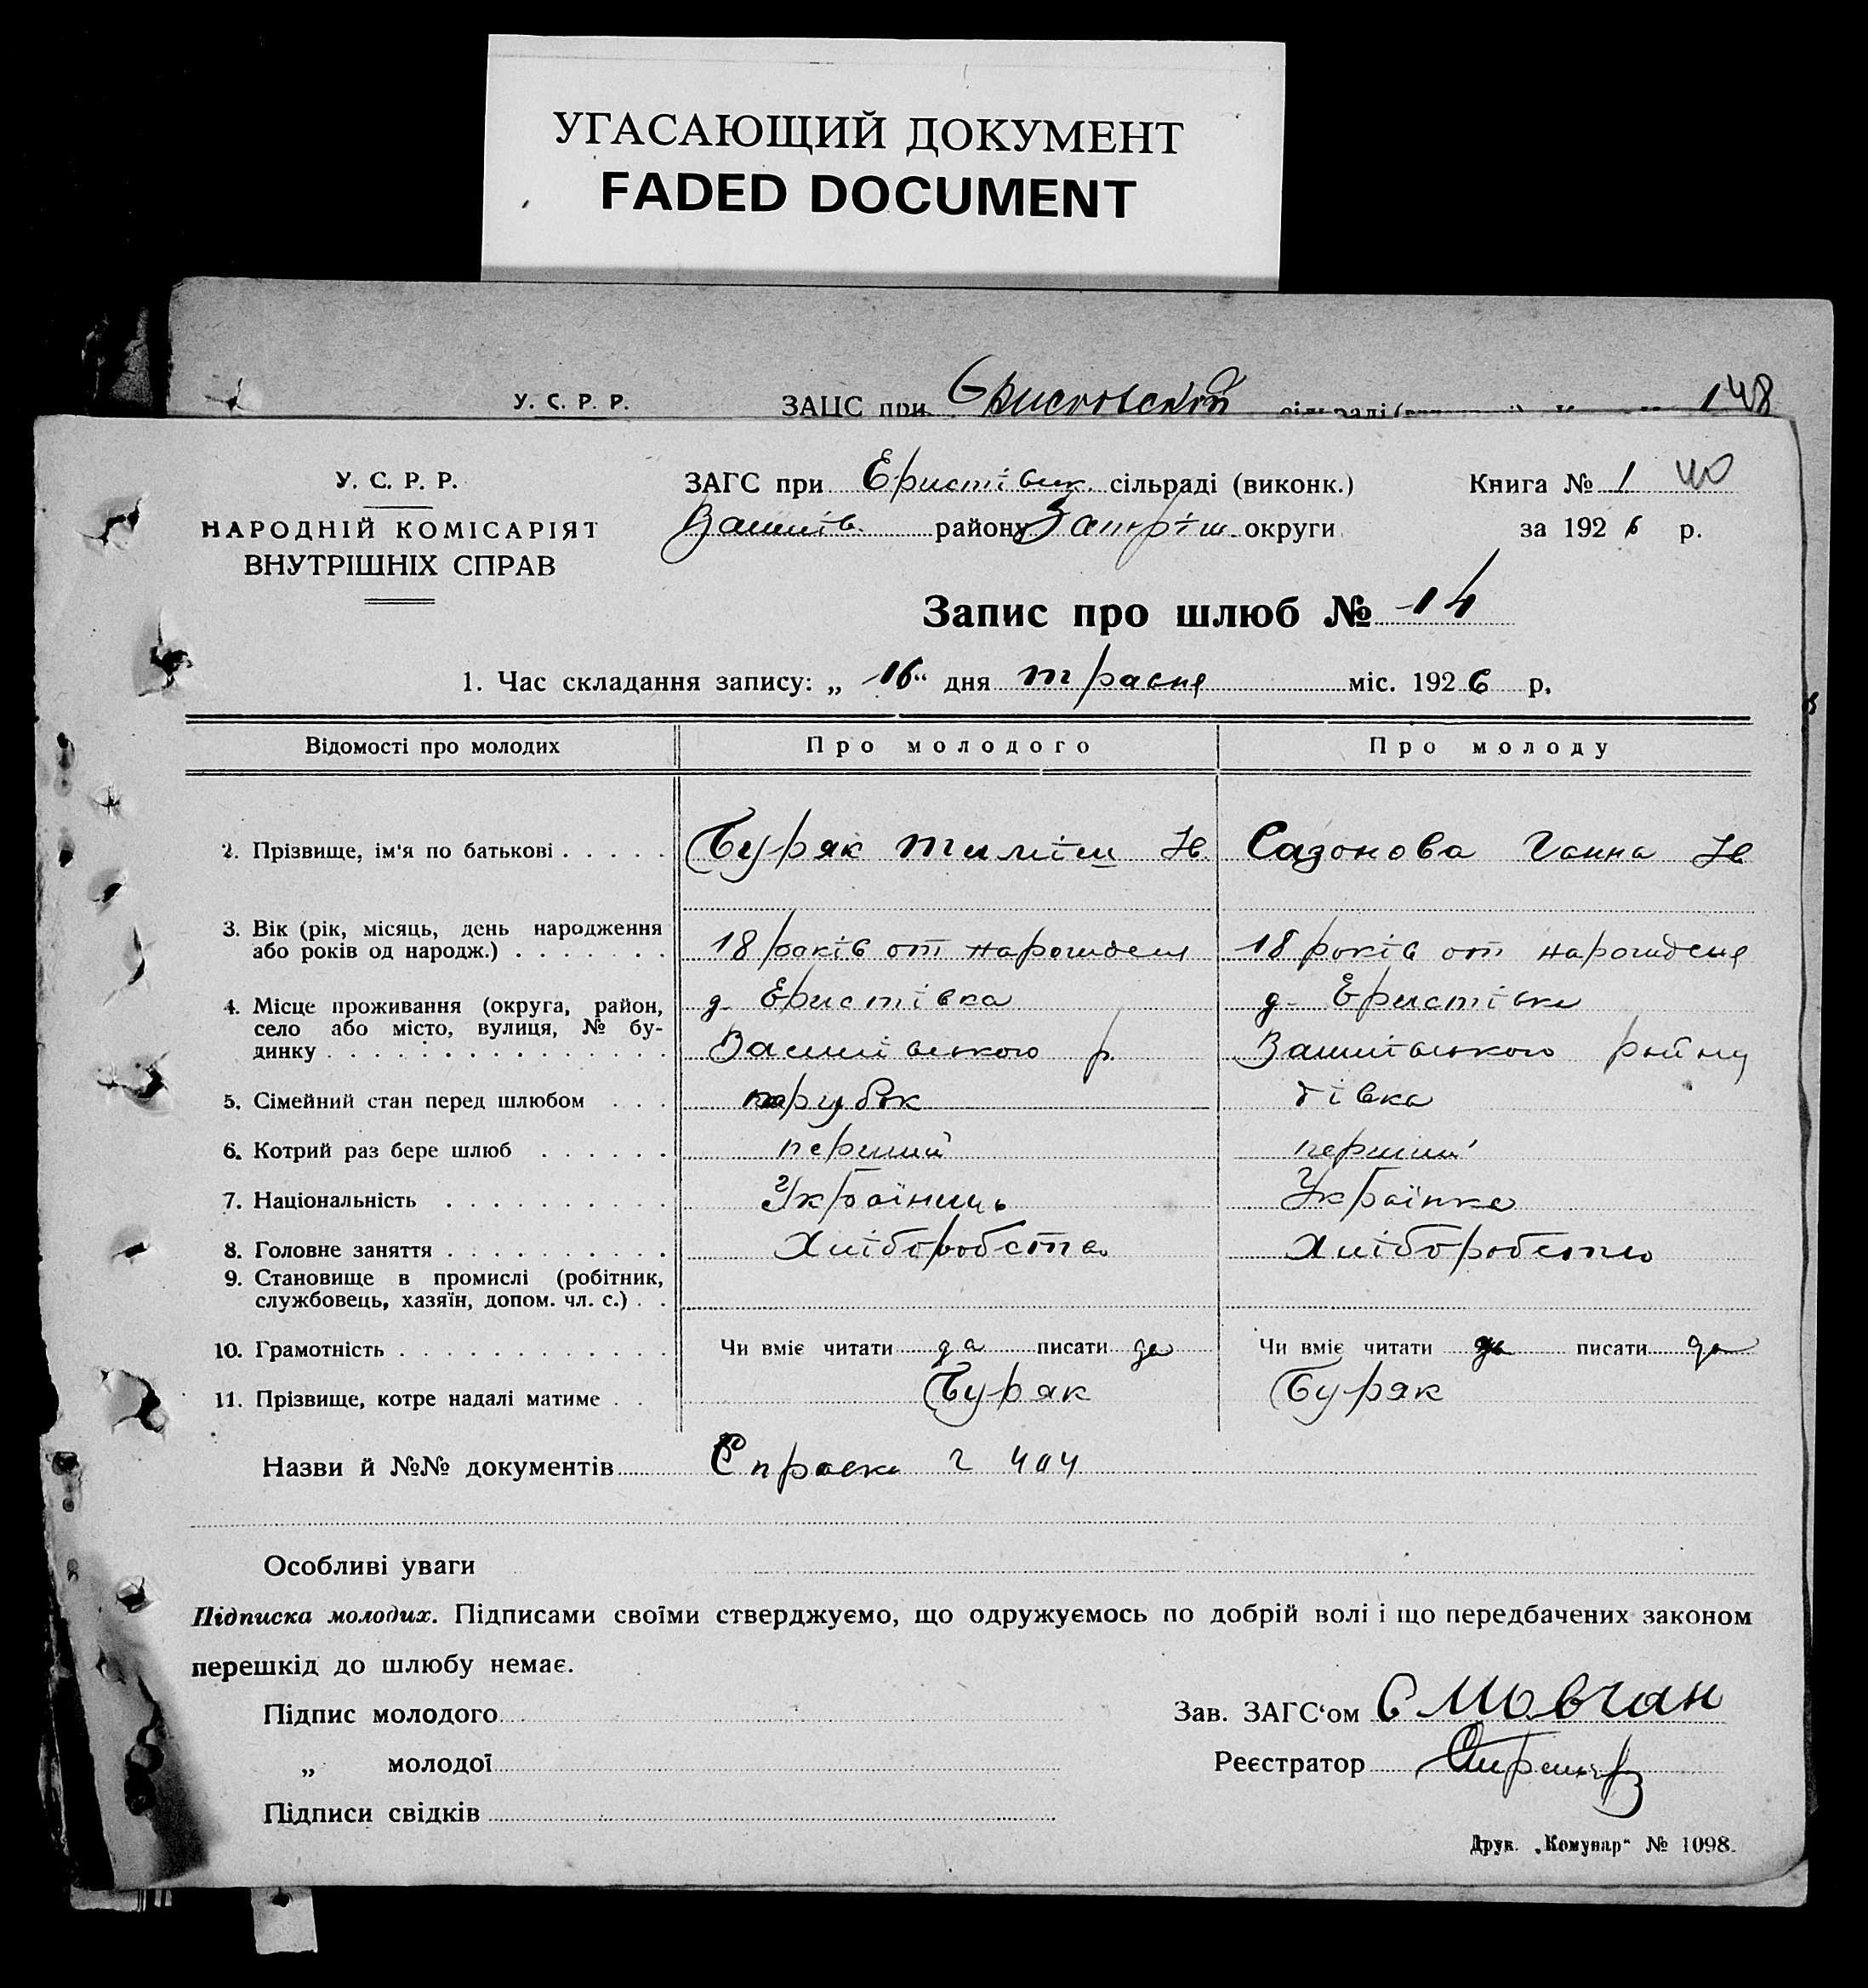 УГАСАЮЩИЙ ДОКУМЕНТ
FADED DOCUMENT
У. С. Р. Р. ЗАГС при 148
У. С. Р. Р.
НАРОДНІЙ КОМІСАРІЯТ
ВНУТРІШНІХ СПРАВ
ЗАГС при Еристівськ. сільраді (виконк.) Книга № 1 40
району округи за 1926 р.
Запис про шлюб № 14
1. Час складання запису: „ 16 “ дня травня міс. 1926 р.
Відомості про молодих Про молодого Про молоду
2. Прізвище, ім'я по батькові Буряк Тиміш Ів. Сазонова Ганна Ів
3. Вік (рік, місяць, день народження
або років од народж.) 18 років от нарождення 18 років от нарождення
4. Місце проживання (округа, район, д. Еристівка д. Еристівка
село або місто, вулиця, № бу-
динку р. району
5. Сімейний стан перед шлюбом парубок дівка
6. Котрий раз бере шлюб перший перший
7. Національність Українець Українка
8. Головне заняття Хліборобства Хліборобство
9. Становище в промислі (робітник,
службовець, хазяїн, допом. чл. с.)
10. Грамотність Чи вміє читати да писати да Чи вміє читати да писати да
11. Прізвище, котре надалі матиме Буряк Буряк
Назви й №№ документів Справка 404
Особливі уваги
Підписка молодих. Підписами своїми стверджуємо, що одружуємось по добрій волі і що передбачених законом
перешкід до шлюбу немає.
Підпис молодого Зав. ЗАГС'ом С Мовчан
„ молодої Реєстратор
Підписи свідків
Друк. „Комунар“ № 1098.